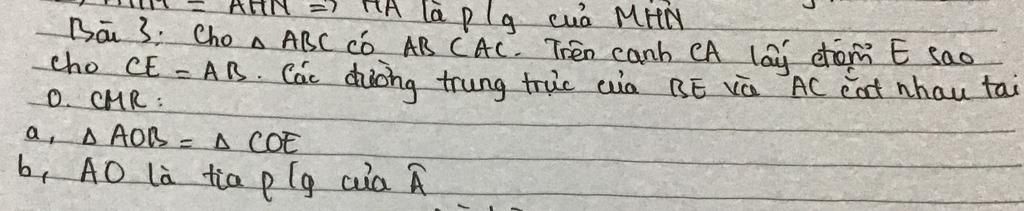 = AHN => HA là p/g của MHN
Bài 3: Cho Δ ABC có AB < AC. Trên cạnh CA lấy điểm E sao
cho CE = AB. Các đường trung trực của BE và AC cắt nhau tai
O. CMR:
a, Δ AOB = Δ COE
b, AO là tia p/g của Â